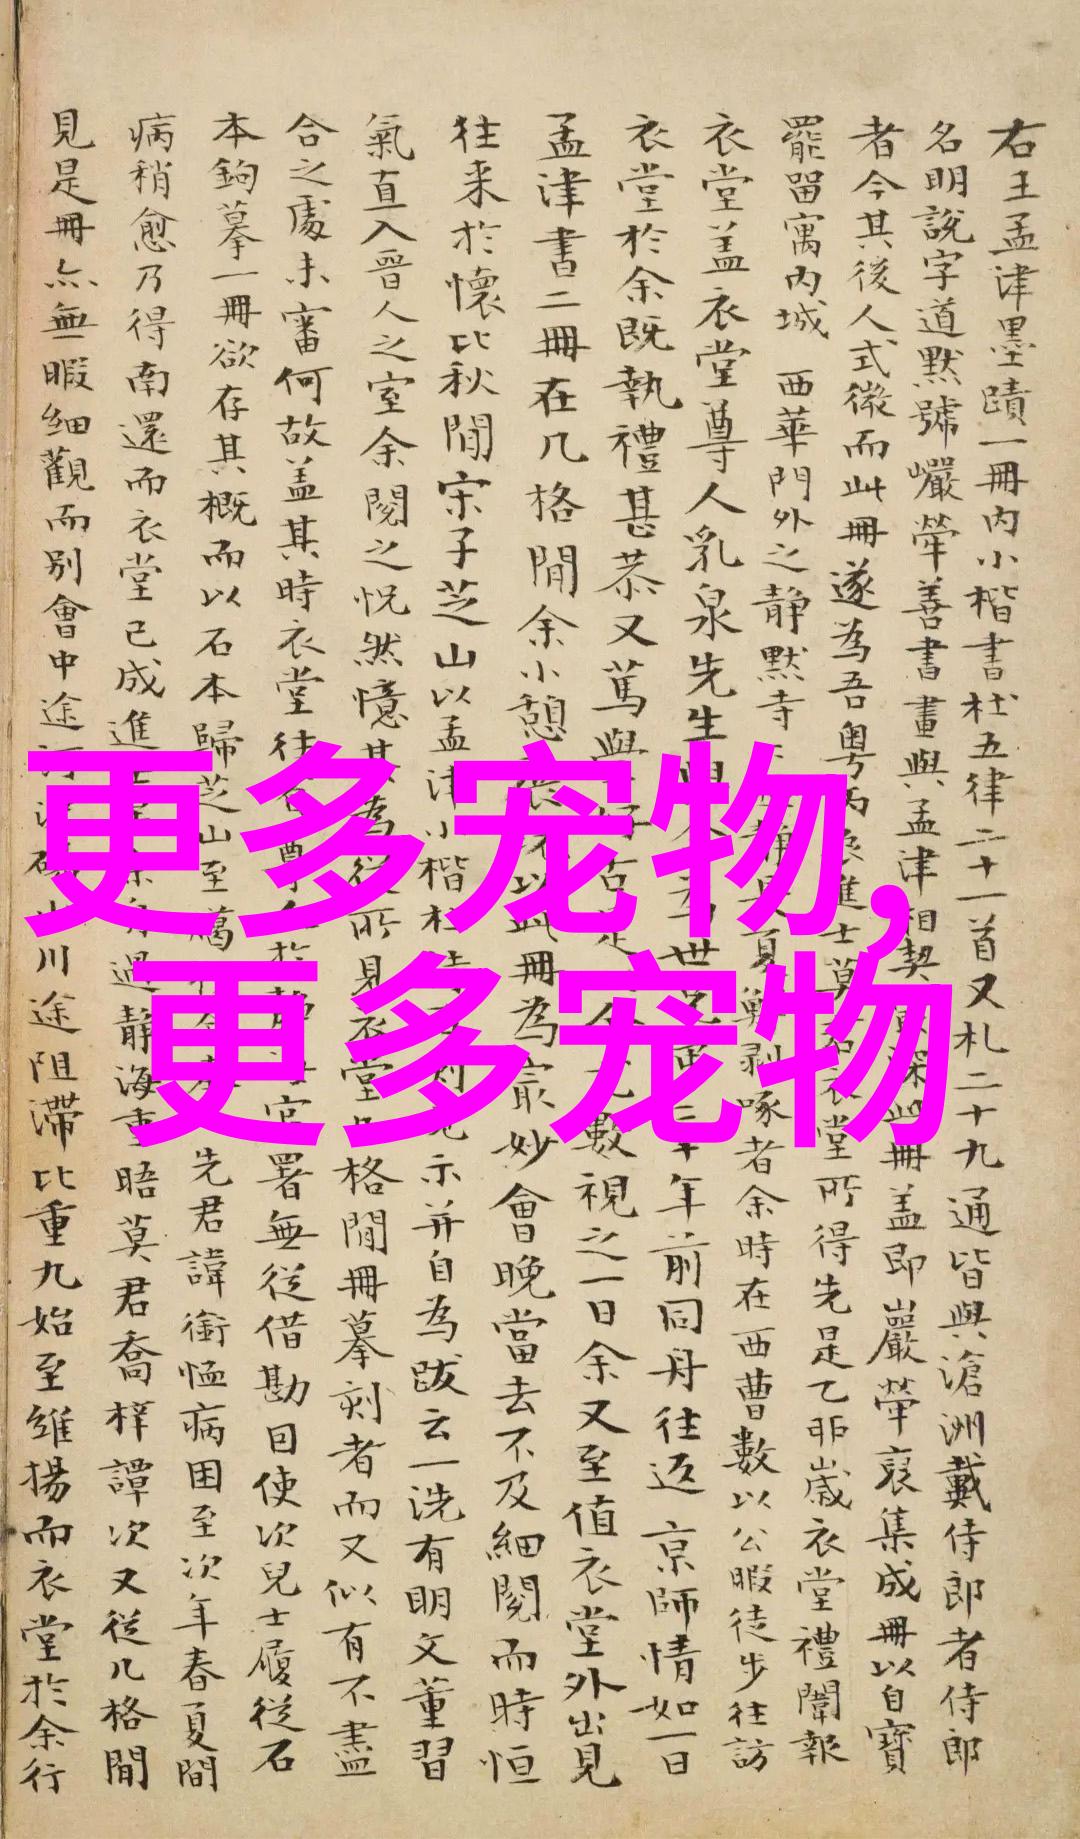 右王孟津墨蹟一冊内小楷書杜五律二十一首又札二十九通皆與滄洲戴侍郎者侍郎
名明說字道默號巗犖善書畫與孟津相契最深此冊盖即巖犖裒集成冊以自寶
者今其後人式微而此冊遂為吾粵丙辰進士莫君衣堂所得先是乙卯歲衣堂禮闈報
罷留寓内城 西華門外之静默寺夏剥啄者余時在西曹數以公暇徒步往訪
衣堂盖衣堂尊人乳泉先生世三十年前同舟往返 京師情如一日
衣堂於余既執禮甚恭又篤與好古數視之一日余又至值衣堂外出見
孟津書二冊在几格間余小憩以此冊為最妙會晚當去不及細閱而時恒
往来於懷比秋間宋子芝山以孟津小楷杜示并自為跋云一洗有明文董習
氣直入晉人之室余閱之怳然憶其為從所見衣堂几格間冊摹刻者而又似有不盡
合之處未審何故盖其時衣堂往官署無從借勘因使次兒士履從石
本鉤摹一冊欲存其概而以石本歸芝山至臈先君諱銜恤病困至次年春夏間
病稍愈乃得南還而衣堂已成進過静海重晤莫君喬梓譚次又從几格間
見是冊亦無暇细觀而别會中途川途阻滯比重九始至維揚而衣堂於余行
更多宠物,
更多宠物